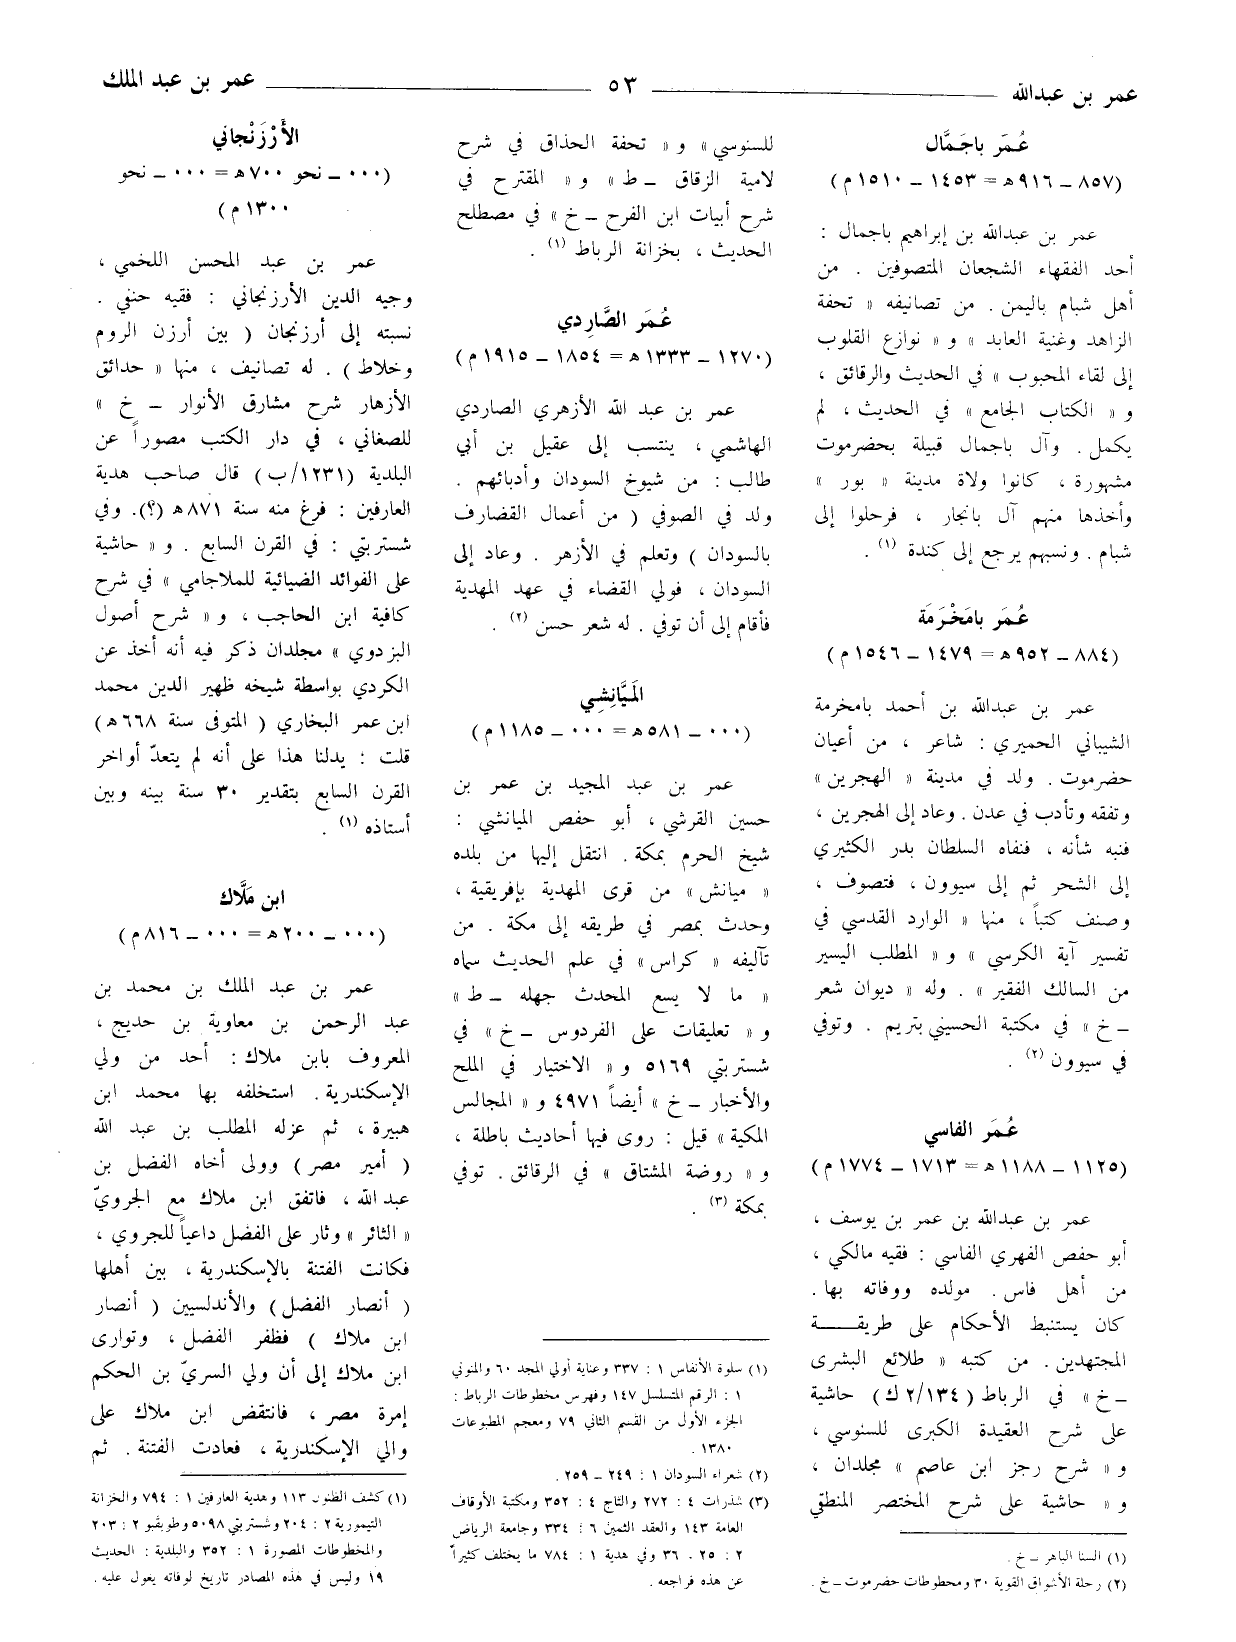 عمر بن عبدالله
٥٣
عمر بن عبد الملك
عُمَر باجَمَّال
(٨٥٧ ــ ٩١٦ هـ = ١٤٥٣ ــ ١٥١٠ م)
عمر بن عبدالله بن إبراهيم باجمال :
أحد الفقهاء الشجعان المتصوفين . من
أهل شبام باليمن . من تصانيفه « تحفة
الزاهد وغنية العابد » و « نوازع القلوب
إلى لقاء المحبوب » في الحديث والرقائق ،
و « الكتاب الجامع » في الحديث ، لم
يكمل . وآل باجمال قبيلة بحضرموت
مشهورة ، كانوا ولاة مدينة « بور »
وأخذها منهم آل بانجار ، فرحلوا إلى
شبام . ونسبهم يرجع إلى كندة (١) .
عُمَر بامَخْرَمَة
(٨٨٤ ــ ٩٥٢ هـ = ١٤٧٩ ــ ١٥٤٦ م)
عمر بن عبدالله بن أحمد بامخرمة
الشيباني الحميري : شاعر ، من أعيان
حضرموت . ولد في مدينة « الهجرين »
وتفقه وتأدب في عدن . وعاد إلى الهجرين ،
فنبه شأنه ، فنفاه السلطان بدر الكثيري
إلى الشحر ثم إلى سيوون ، فتصوف ،
وصنف كتباً ، منها « الوارد القدسي في
تفسير آية الكرسي » و « المطلب اليسير
من السالك الفقير » . وله « ديوان شعر
ــ خ » في مكتبة الحسيني بتريم . وتوفي
في سيوون (٢) .
عُمَر الفاسي
(١١٢٥ ــ ١١٨٨ هـ = ١٧١٣ ــ ١٧٧٤ م)
عمر بن عبدالله بن عمر بن يوسف ،
أبو حفص الفهري الفاسي : فقيه مالكي ،
من أهل فاس . مولده ووفاته بها .
كان يستنبط الأحكام على طريقة
المجتهدين . من كتبه « طلائع البشرى
ــ خ » في الرباط (٢/١٣٤ ك) حاشية
على شرح العقيدة الكبرى للسنوسي ،
و « شرح رجز ابن عاصم » مجلدان ،
و « حاشية على شرح المختصر المنطقي
(١) السنا الباهر ــ خ .
(٢) رحلة الأشواق القوية ٣٠ ومخطوطات حضرموت ــ خ .
للسنوسي » و « تحفة الحذاق في شرح
لامية الزقاق ــ ط » و « المقترح في
شرح أبيات ابن الفرح ــ خ » في مصطلح
الحديث ، بخزانة الرباط (١) .
عُمَر الصَّارِدي
(١٢٧٠ ــ ١٣٣٣ هـ = ١٨٥٤ ــ ١٩١٥ م)
عمر بن عبد الله الأزهري الصاردي
الهاشمي ، ينتسب إلى عقيل بن أبي
طالب : من شيوخ السودان وأدبائهم .
ولد في الصوفي ( من أعمال القضارف
بالسودان ) وتعلم في الأزهر . وعاد إلى
السودان ، فولي القضاء في عهد المهدية
فأقام إلى أن توفي . له شعر حسن (٢) .
المَيَّانِشِي
(٠٠٠ ــ ٥٨١ هـ = ٠٠٠ ــ ١١٨٥ م)
عمر بن عبد المجيد بن عمر بن
حسين القرشي ، أبو حفص الميانشي :
شيخ الحرم بمكة . انتقل إليها من بلده
« ميانش » من قرى المهدية بإفريقية ،
وحدث بمصر في طريقه إلى مكة . من
تآليفه « كراس » في علم الحديث سماه
« ما لا يسع المحدث جهله ــ ط »
و « تعليقات على الفردوس ــ خ » في
شستربتي ٥١٦٩ و « الاختيار في الملح
والأخبار ــ خ » أيضاً ٤٩٧١ و « المجالس
المكية » قيل : روى فيها أحاديث باطلة ،
و « روضة المشتاق » في الرقائق . توفي
بمكة (٣) .
(١) سلوة الأنفاس ١ : ٣٣٧ وعناية أولي المجد ٦٠ والمنوني
١ : الرقم المتسلسل ١٤٧ وفهرس مخطوطات الرباط :
الجزء الأول من القسم الثاني ٧٩ ومعجم المطبوعات
١٣٨٠ .
(٢) شعراء السودان ١ : ٢٤٩ ــ ٢٥٩ .
(٣) شذرات ٤ : ٢٧٢ والتاج ٤ : ٣٥٢ ومكتبة الأوقاف
العامة ١٤٣ والعقد الثمين ٦ : ٣٣٤ وجامعة الرياض
٢ : ٢٥ ، ٣٦ وفي هدية ١ : ٧٨٤ ما يختلف كثيراً
عن هذه فراجعه .
الأَرْزَنْجاني
(٠٠٠ ــ نحو ٧٠٠ هـ = ٠٠٠ ــ نحو
١٣٠٠ م)
عمر بن عبد المحسن اللخمي ،
وجيه الدين الأرزنجاني : فقيه حنفي .
نسبته إلى أرزنجان ( بين أرزن الروم
وخلاط ) . له تصانيف ، منها « حدائق
الأزهار شرح مشارق الأنوار ــ خ »
للصغاني ، في دار الكتب مصوراً عن
البلدية (١٢٣١/ب) قال صاحب هدية
العارفين : فرغ منه سنة ٨٧١ هـ (؟). وفي
شستربتي : في القرن السابع . و « حاشية
على الفوائد الضيائية للملاجامي » في شرح
كافية ابن الحاجب ، و « شرح أصول
البزدوي » مجلدان ذكر فيه أنه أخذ عن
الكردي بواسطة شيخه ظهير الدين محمد
ابن عمر البخاري ( المتوفى سنة ٦٦٨ هـ )
قلت : يدلنا هذا على أنه لم يتعدّ أواخر
القرن السابع بتقدير ٣٠ سنة بينه وبين
أستاذه (١) .
ابن مَلَّاك
(٠٠٠ ــ ٢٠٠ هـ = ٠٠٠ ــ ٨١٦ م)
عمر بن عبد الملك بن محمد بن
عبد الرحمن بن معاوية بن حديج ،
المعروف بابن ملاك : أحد من ولي
الإسكندرية . استخلفه بها محمد ابن
هبيرة ، ثم عزله المطلب بن عبد الله
( أمير مصر ) وولى أخاه الفضل بن
عبدالله ، فاتفق ابن ملاك مع الجرويّ
« الثائر » وثار على الفضل داعياً للجروي ،
فكانت الفتنة بالإسكندرية ، بين أهلها
( أنصار الفضل ) والأندلسيين ( أنصار
ابن ملاك ) فظفر الفضل ، وتوارى
ابن ملاك إلى أن ولي السريّ بن الحكم
إمرة مصر ، فانتقض ابن ملاك على
والي الإسكندرية ، فعادت الفتنة . ثم
(١) كشف الظنون ١١٣ وهدية العارفين ١ : ٧٩٤ والخزانة
التيمورية ٢ : ٢٠٤ وشستربتي ٥٠٩٨ وطوبقبو ٢ : ٢٠٣
والمخطوطات المصورة ١ : ٣٥٢ والبلدية : الحديث
١٩ وليس في هذه المصادر تاريخ لوفاته يعول عليه .